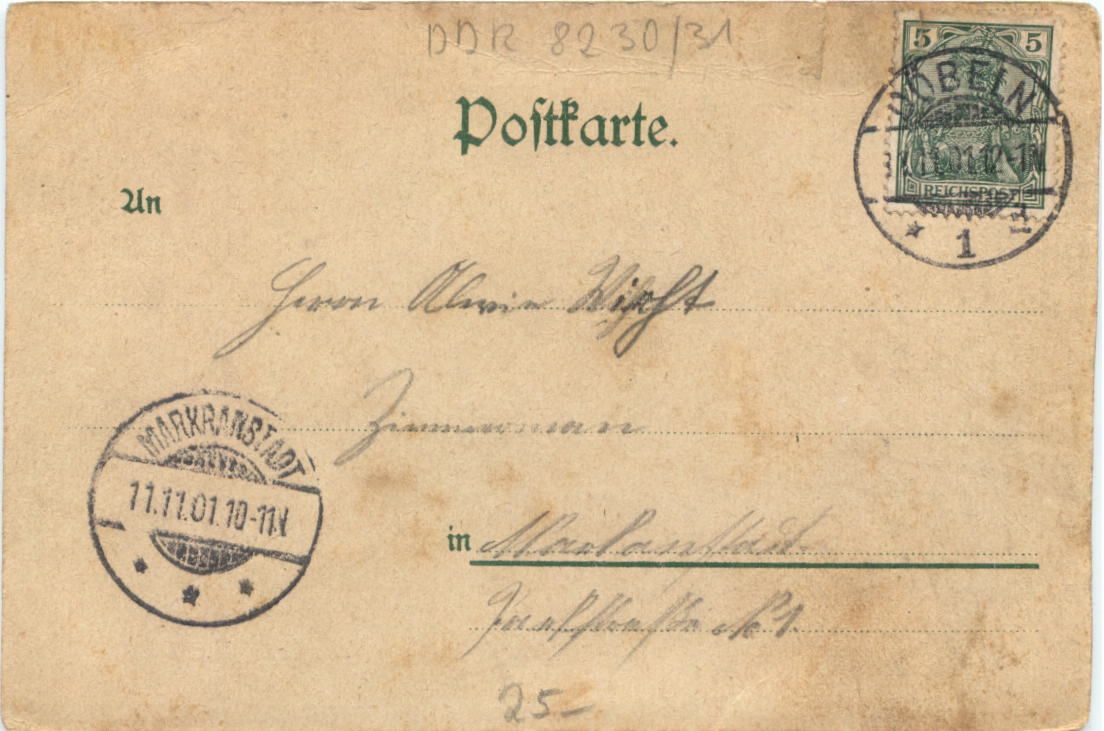 DDR 8230/31
5 5
DÖBELN
11.01.12-1N
REICHSPOST
* 1
Postkarte.
An
Herrn Alwin
Zimmermann
MARKRANSTÄDT
11.11.01.10-11N
in Markranstädt
№ 1
25-